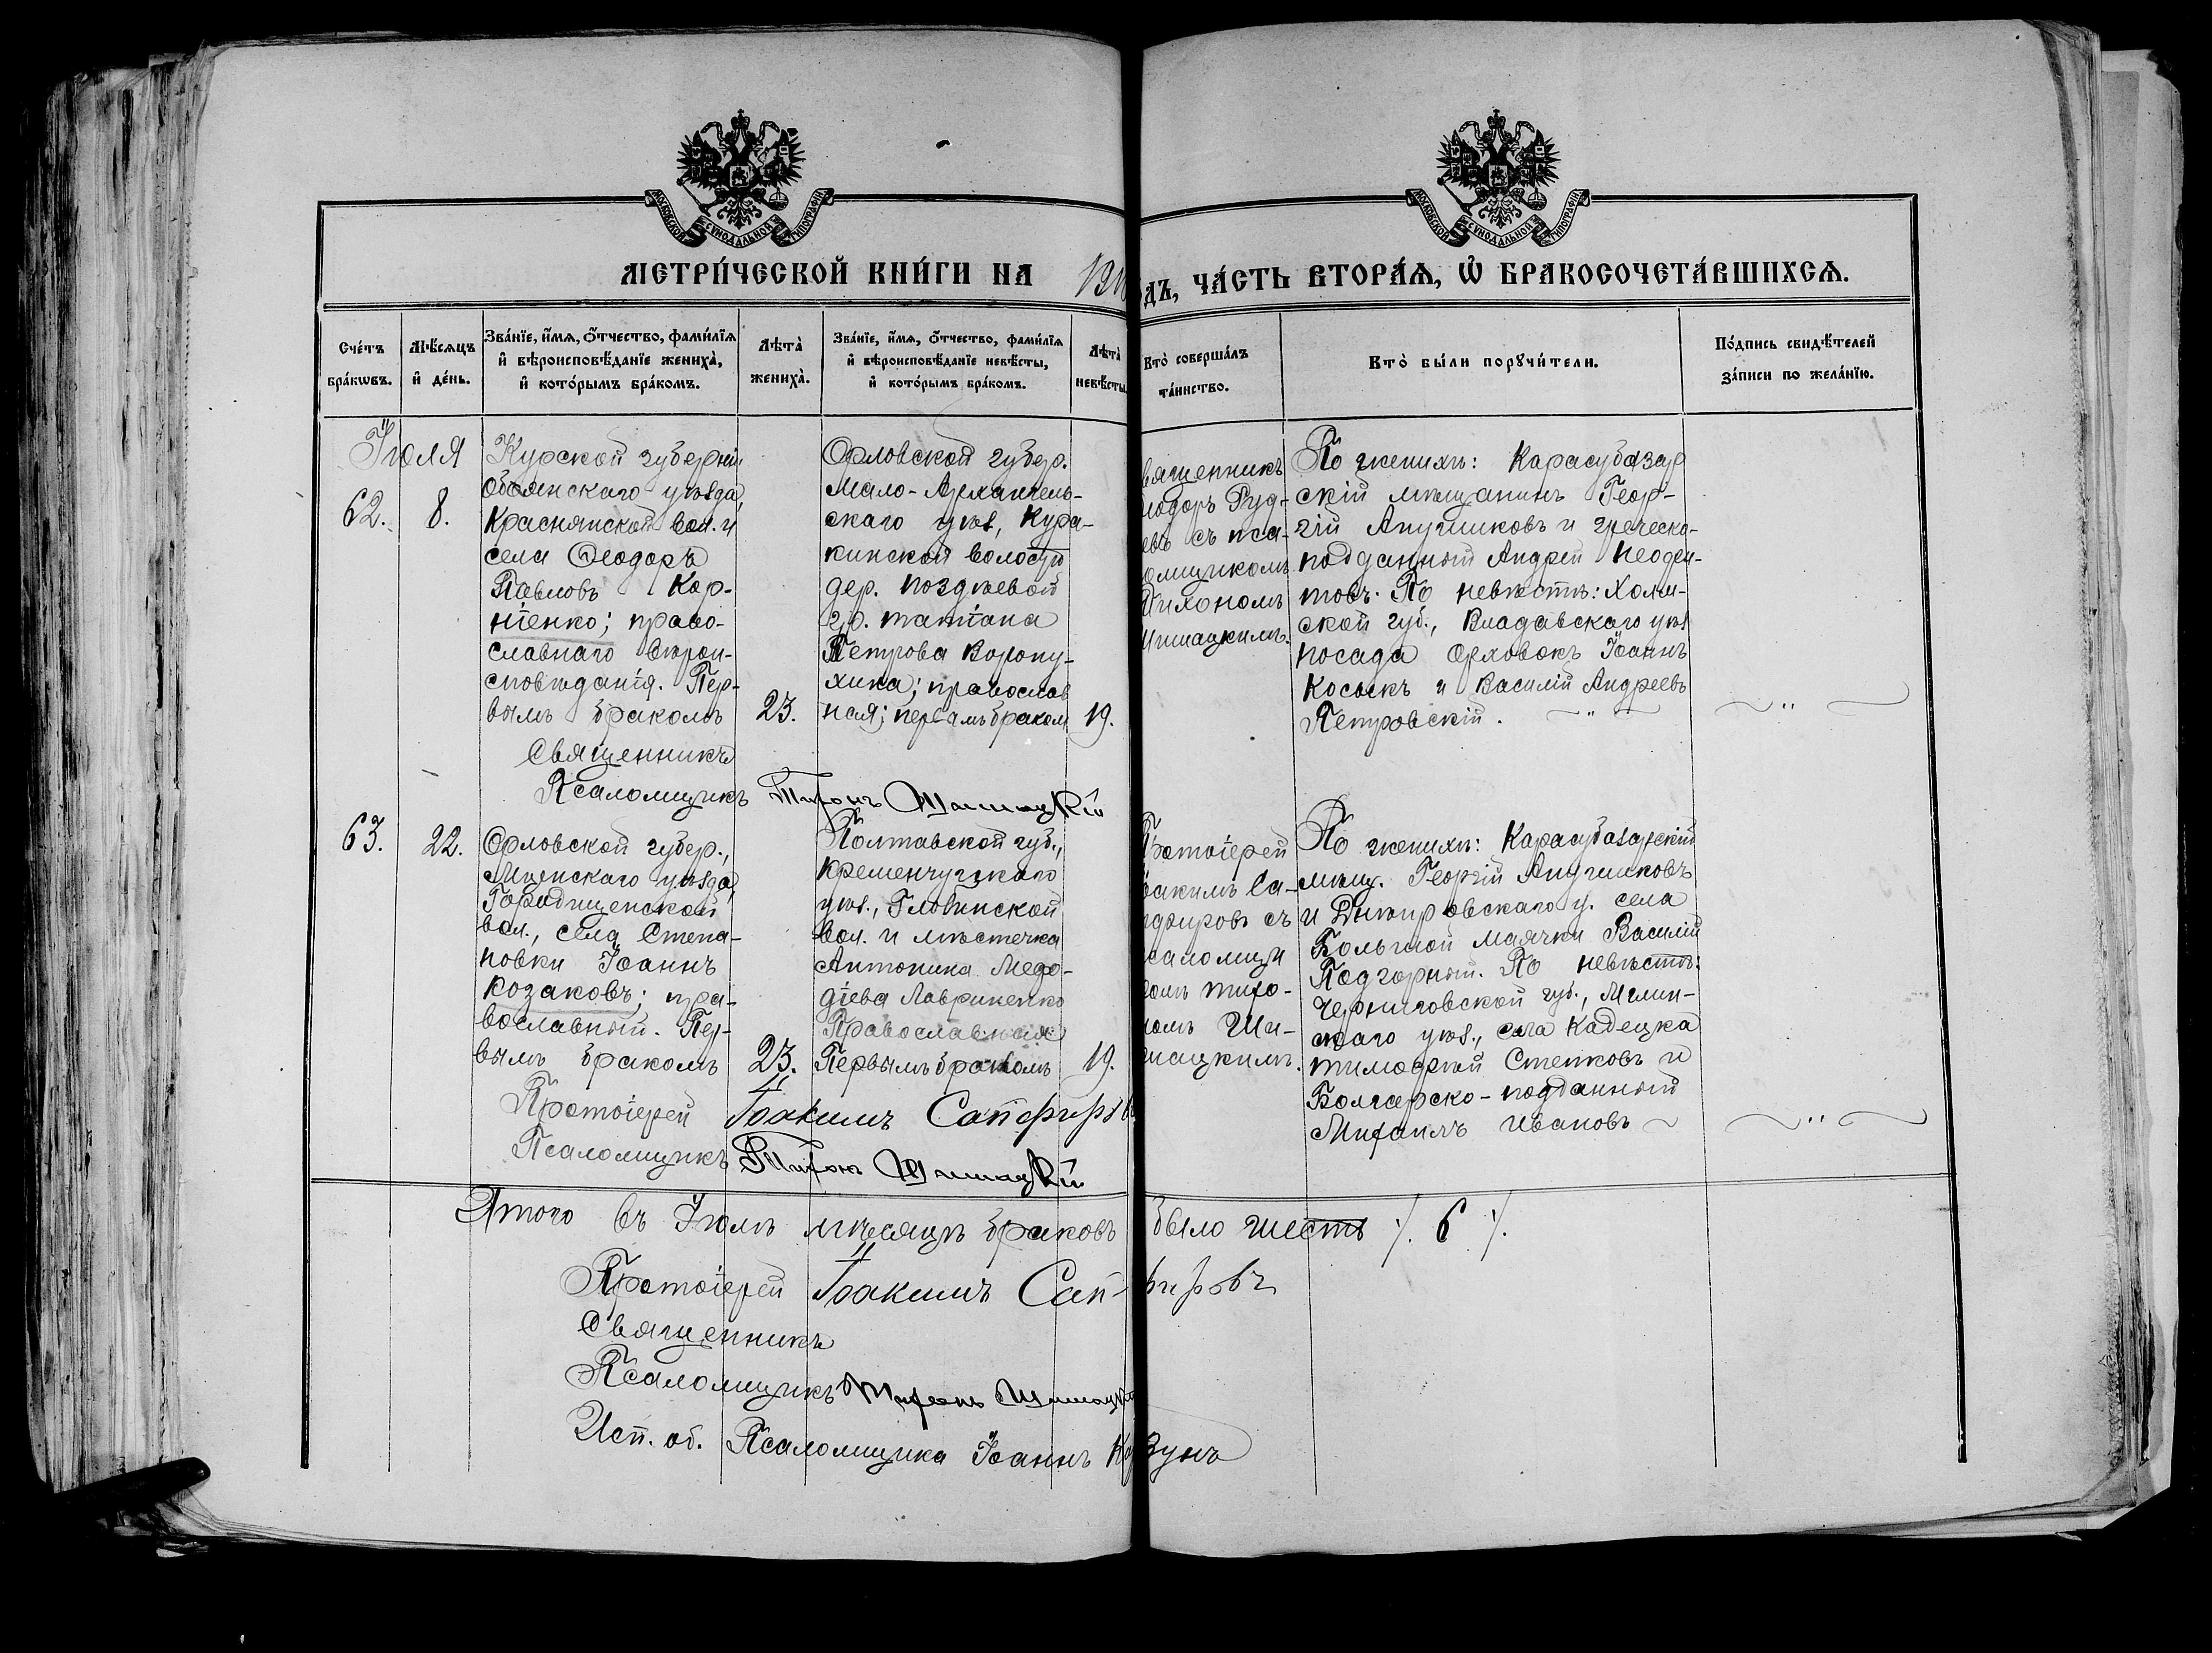 МОСКОВСКОЙ СУНОДАЛЬНОЙ ТИПОГРАФІИ
МОСКОВСКОЙ СУНОДАЛЬНОЙ ТИПОГРАФІИ
МЕТРИ́ЧЕСКОЙ КНИ́ГИ НА
ДЪ, ЧА́СТЬ ВТОРА́Я, Ѡ БРАКОСОЧЕТА́ВШИХСЯ.
Сче́тъ бра́кωвъ.
Мѣ́сяцъ и де́нь.
Зва́нїе, и́мя, ѻ́тчество, фами́лїя и вѣроисповѣ́данїе жениха̀, и кото́рымъ бра́комъ.
Лѣта̀ жениха̀.
Зва́нїе, и́мя, ѻ́тчество, фами́лїя и вѣроисповѣ́данїе невѣ́сты, и кото́рымъ бра́комъ.
Лѣта̀ невѣ́сты.
Кто̀ соверша́лъ та́инство.
Кто̀ бы́ли порꙋчи́тели.
По́дпись свидѣ́телей за́писи по жела́нїю.
Іюля
62.
8.
Курской губерніи
Обоянскаго уѣзда,
Краснянской вол. и
села Ѳеодоръ
Павловъ Кор-
ніенко; право-
славнаго вѣрои-
сповѣданія. Пер-
вымъ бракомъ
23.
Орловской губер.
Мало-Архангель-
скаго уѣз, Кура-
кинской волости
дер. Поздѣевой
гр. Татіана
Петрова Ворону-
хина; православ
ная; первымъ бракомъ
19.
вященникъ
одоръ Руд-
евъ съ пса-
омщикомъ
Тихономъ
Шишацкимъ.
По женихѣ: Карасубазар
скій мѣщанинъ Геор-
гій Апушиковъ и греческо-
подданный Андрей Неоѳи-
товъ. По невѣстѣ: Холм-
ской губ., Владавскаго уѣз
посада Орховокъ Іоаннъ
Косыкъ и Василій Андреевъ
Петровскій.
Священникъ
Псаломщикъ Тихонъ Шишацкій
63.
22.
Орловской губер.,
Мценскаго уѣзда,
Городищенской
вол., села Степа-
новки Іоаннъ
Козаковъ; пра-
вославный. Пер-
вымъ бракомъ
23.
Полтавской губ.,
Кременчугскаго
уѣз., Глобинской
вол. и мѣстечка
Антонина Меѳо-
діева Лавриненко
Православная
Первымъ бракомъ
19.
Протоіерей
оакимъ Са-
пфировъ съ
саломщи
комъ Тихо-
номъ Ши-
шацкимъ.
По женихѣ: Карасубазарскій
мѣщ. Георгій Апушиковъ
и Днѣпровскаго у. села
Большой Маячки Василій
Подгорный. По невѣстѣ:
Черниговской губ., Мглин-
скаго уѣз., села Кадецка
Тимоѳей Стенковъ и
Болгарско-подданный
Михаилъ Ивановъ
Протоіерей Іоакимъ Сапфировъ
Псаломщикъ Тихонъ Шишацкій
Итого въ Іюлѣ мѣсяцѣ браковъ было шесть /. 6 ./.
Протоіерей Іоакимъ Сапфировъ
Священникъ
Псаломщикъ Тихонъ Шишацкій
Исп. об. Псаломщика Іоаннъ